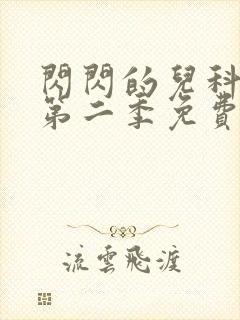 閃閃的兒科
第二季免費
流雲飛渡